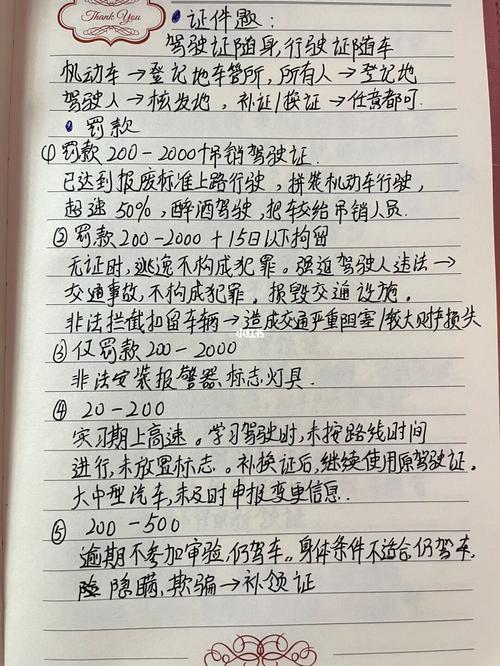 Thank You
证件题:
驾驶证随身,行驶证随车
机动车→登记地车管所,所有人→登记地
驾驶人→核发地,补证/换证→任意都可.
罚款
①罚款200-2000+吊销驾驶证.
已达到报废标准上路行驶,拼装机动车行驶,
超速50%,醉酒驾驶,把车交给吊销人员.
②罚款200-2000+15日以下拘留
无证时,逃逸不构成犯罪。强迫驾驶人违法→
交通事故,不构成犯罪。损毁交通设施。
非法拦截扣留车辆→造成交通严重阻塞/较大财产损失
小红书
③仅罚款200-2000
非法安装报警器.标志灯具.
④ 20-200
实习期上高速。学习驾驶时,未按路线时间
进行,未放置标志。补换证后,继续使用原驾驶证.
大中型汽车,未及时申报变更信息.
⑤ 200-500
逾期不参加审验,仍驾车。身体条件不适合,仍驾车.
隐瞒,欺骗→补领证